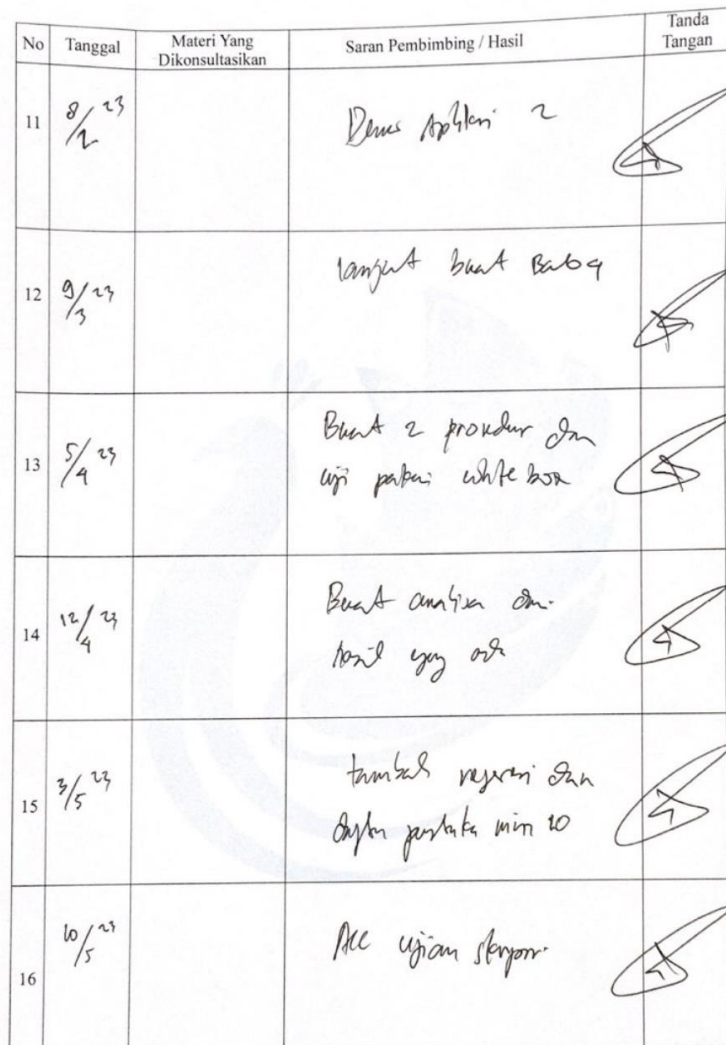 No Tanggal Materi Yang Dikonsultasikan Saran Pembimbing / Hasil Tanda Tangan
11 8/2 23 Demo Aplikasi 2
12 9/3 23 lanjut buat Bab 4
13 5/4 23 Buat 2 prosedur dan
uji pakai white box
14 12/4 23 Buat analisa dari
hasil yang ada
15 3/5 23 tambah referensi dan
daftar pustaka min 20
16 10/5 23 Acc ujian skripsi